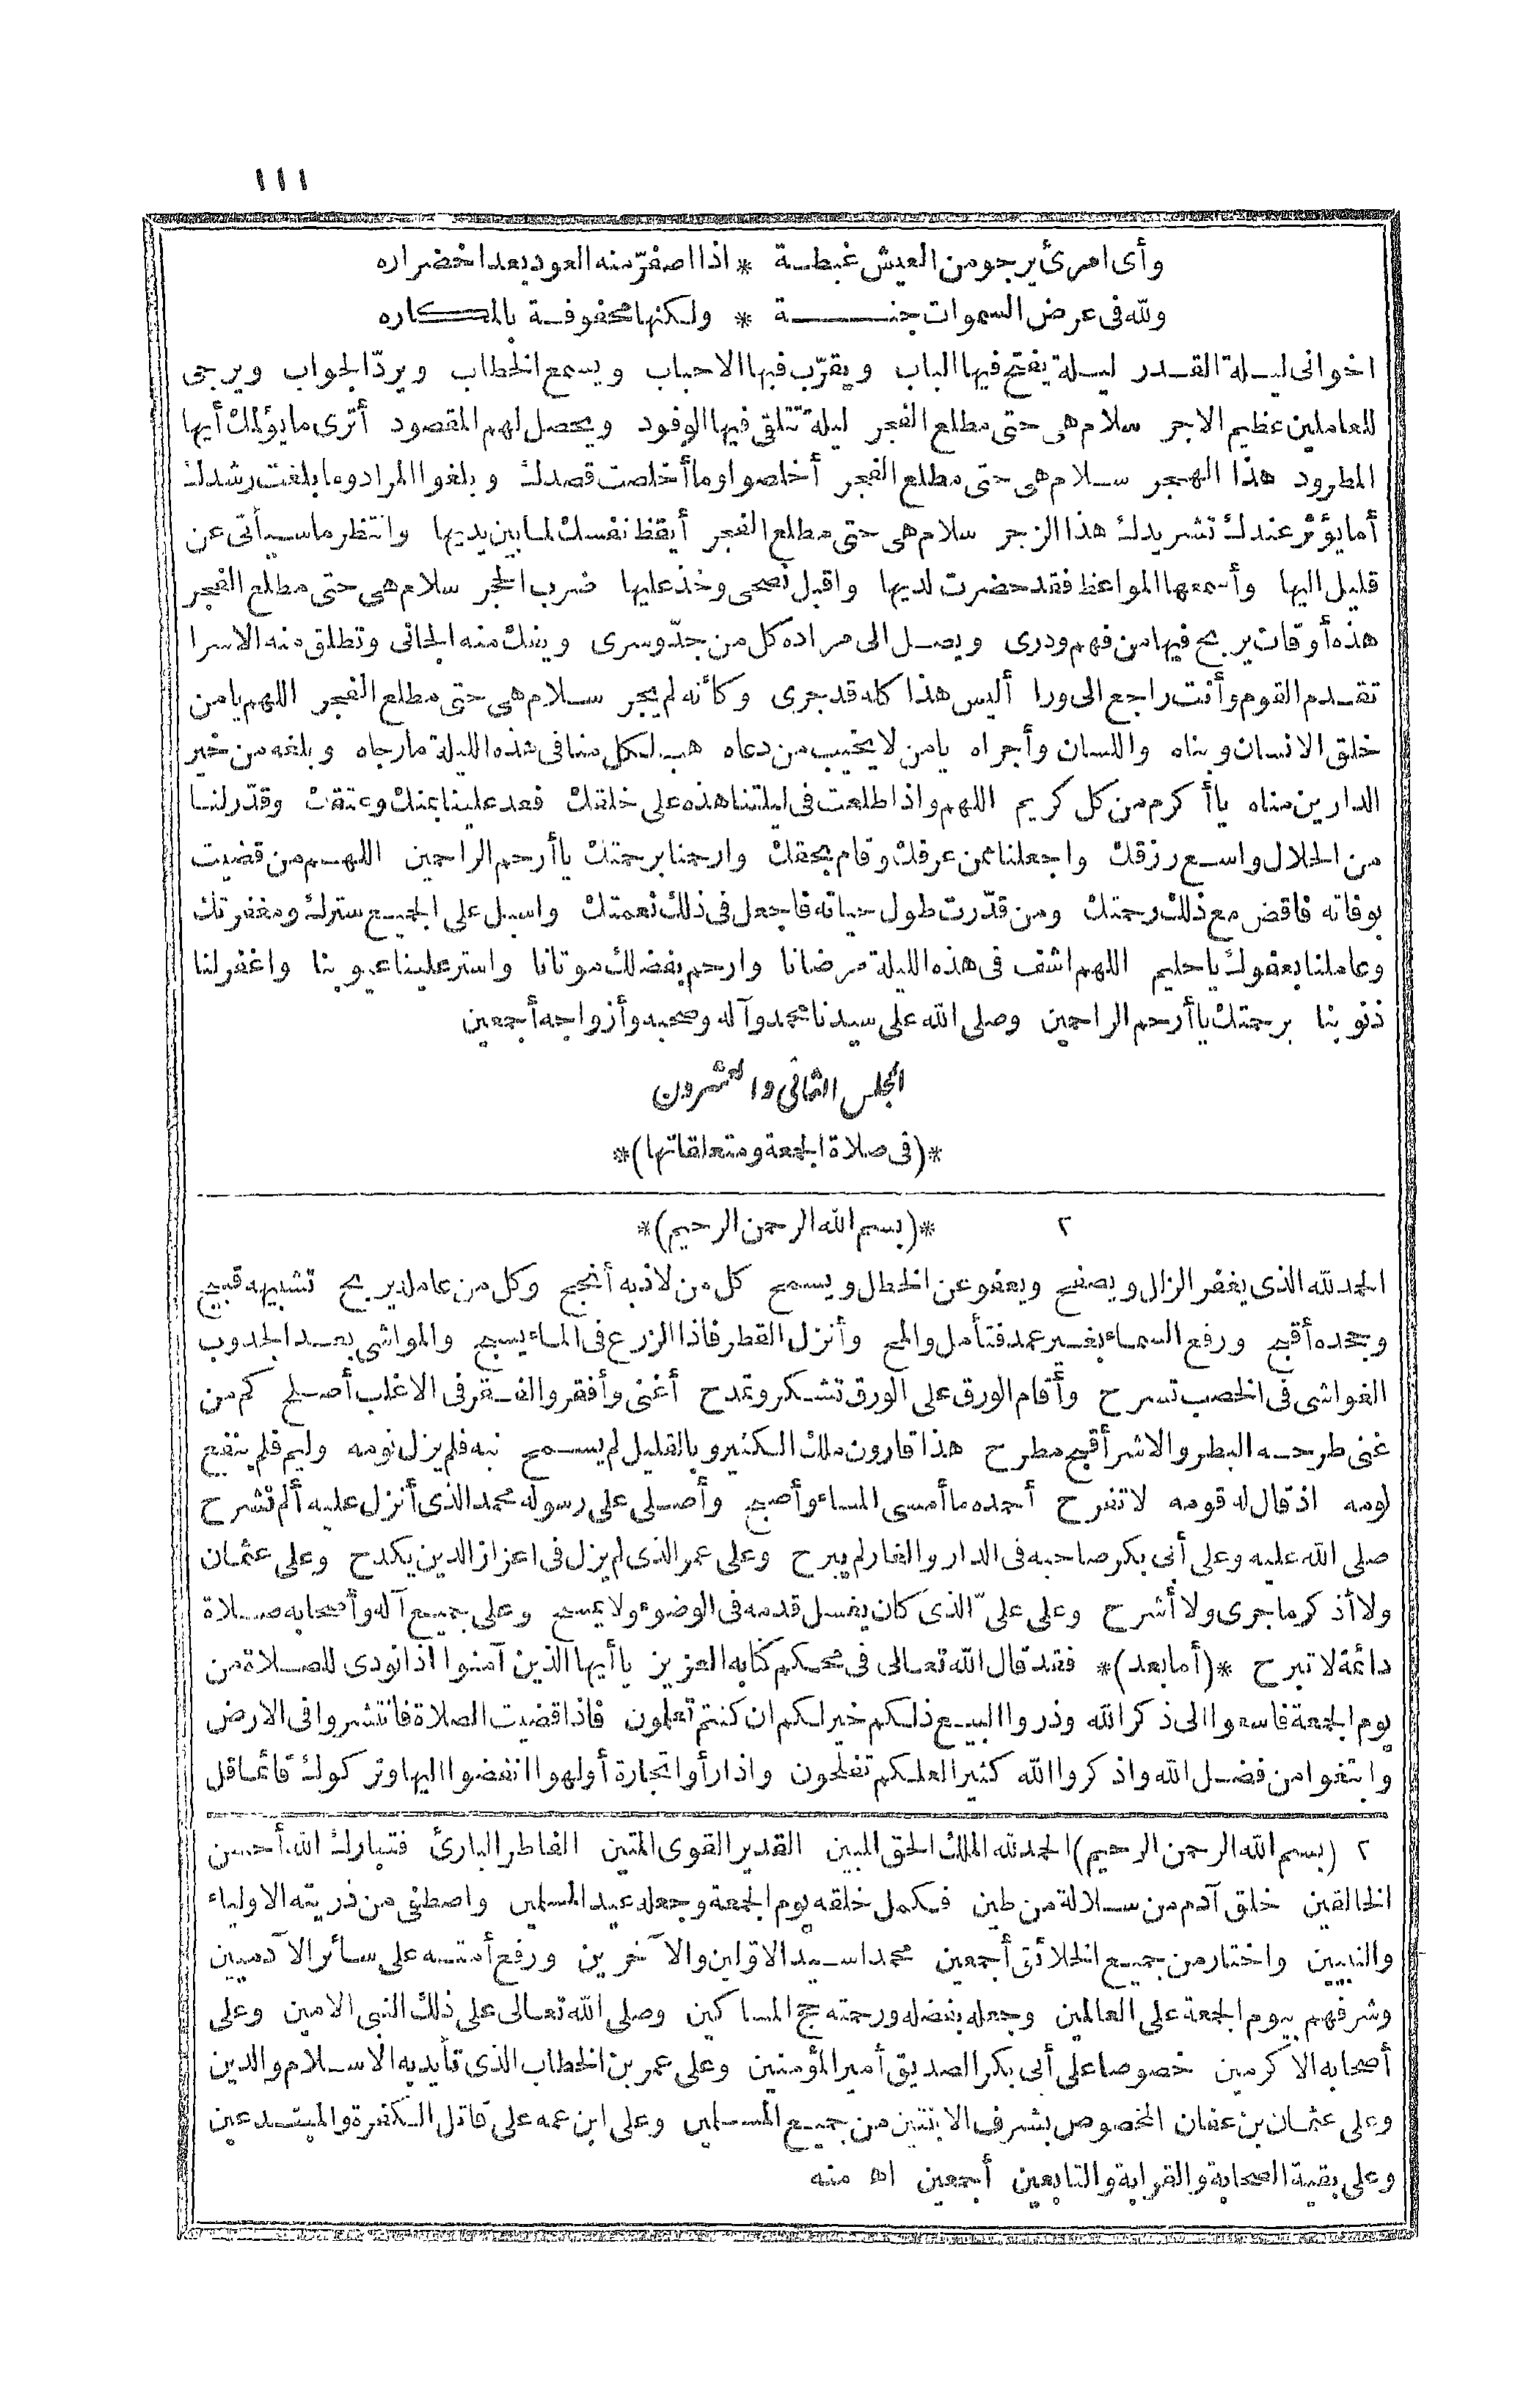 ١١١
وأى امرئ يرجو من العيش غبطة * اذا اصفرّ منه العود بعد اخضراره
ولله فى عرض السموات جنة * ولكنها محفوفة بالمكاره
اخوانى ليلة القدر ليلة يفتح فيها الباب ويقرّب فيها الاحباب ويسمع الخطاب ويردّ الجواب ويرجى
للعاملين عظيم الاجر سلام هى حتى مطلع الفجر ليلة تتلقى فيها الوفود ويحصل لهم المقصود أترى ما يؤلمك أيها
المطرود هذا الهجر سلام هى حتى مطلع الفجر أخلصوا وما أخلصت قصدك وبلغوا المراد وما بلغت رشدك
أما يؤثر عندك تشريدك هذا الزجر سلام هى حتى مطلع الفجر أيقظ نفسك لما بين يديها وانتظر ما سيأتى عن
قليل اليها وأسمعها المواعظ فقد حضرت لديها واقبل نصحى وخذ عليها ضرب الحجر سلام هى حتى مطلع الفجر
هذه أوقات يربح فيها من فهم ودرى ويصل الى مراده كل من جدّ وسرى ويفك منه الجانى وتطلق منه الاسرا
تقدم القوم وأنت راجع الى ورا أليس هذا كله قد جرى وكأنه لم يجر سلام هى حتى مطلع الفجر اللهم يا من
خلق الانسان وبناه واللسان وأجراه يامن لا يخيب من دعاه هب لكل منا فى هذه الليلة ما رجاه وبلغه من خير
الدارين مناه ياأكرم من كل كريم اللهم واذا طلعت فى ليلتنا هذه على خلقك فعد علينا بمنك وعتقك وقدّر لنا
من الحلال واسع رزقك واجعلنا ممن عرفك وقام بحقك وارحمنا برحمتك ياأرحم الراحمين اللهم من قضيت
بوفاته فاقض مع ذلك رحمتك ومن قدّرت طول حياته فاجعل فى ذلك نعمتك واسبل على الجميع سترك ومغفرتك
وعاملنا بعفوك ياحليم اللهم اشف فى هذه الليلة مرضانا وارحم بفضلك موتانا واستر علينا عيوبنا واغفر لنا
ذنوبنا برحمتك ياأرحم الراحمين وصلى الله على سيدنا محمد وآله وصحبه وأزواجه أجمعين
المجلس الثانى والعشرون
*(فى صلاة الجمعة ومتعلقاتها)*
٢ *(بسم الله الرحمن الرحيم)*
الحمد لله الذى يغفر الزلل ويصفح ويعفو عن الخطل ويسمح كل من لاذ به أنجح وكل من عامله يربح تشبيهه قبيح
وجحده أقبح ورفع السماء بغير عمد فتأمل والمح وأنزل القطر فاذا الزرع فى الماء يسبح والمواشى بعد الجدوب
الغواشى فى الخصب تسرح وأقام الورق على الورق تشكر وتمدح أغنى وأفقر والفقر فى الاغلب أصلح كم من
غنى طرحه البطر والاشر أقبح مطرح هذا قارون ملك الكثير وبالقليل لم يسمح نبه فلم يزل نومه وليم فلم ينفع
لومه اذ قال له قومه لا تفرح أحمده ما أمسى المساء وأصبح وأصلى على رسوله محمد الذى أنزل عليه ألم نشرح
صلى الله عليه وعلى أبى بكر صاحبه فى الدار والغار لم يبرح وعلى عمر الذى لم يزل فى اعزاز الدين يكدح وعلى عثمان
ولا أذكر ما جرى ولا أشرح وعلى علىّ الذى كان يغسل قدمه فى الوضوء ولا يمسح وعلى جميع آله وأصحابه صلاة
دائمة لا تبرح *(أما بعد)* فقد قال الله تعالى فى محكم كتابه العزيز ياأيها الذين آمنوا اذا نودى للصلاة من
يوم الجمعة فاسعوا الى ذكر الله وذروا البيع ذلكم خير لكم ان كنتم تعلمون فاذا قضيت الصلاة فانتشروا فى الارض
وابتغوا من فضل الله واذكروا الله كثيرا لعلكم تفلحون واذا رأوا تجارة أو لهوا انفضوا اليها وتركوك قائما قل
٢ (بسم الله الرحمن الرحيم) الحمد لله الملك الحق المبين القدير القوى المتين الفاطر البارئ فتبارك الله أحسن
الخالقين خلق آدم من سلالة من طين فكمل خلقه يوم الجمعة وجعله عيد المسلمين واصطفى من ذريته الاولياء
والنبيين واختار من جميع الخلائق أجمعين محمدا سيد الاوّلين والآخرين ورفع أمته على سائر الآدميين
وشرفهم بيوم الجمعة على العالمين وجعله بفضله ورحمته حج المساكين وصلى الله تعالى على ذلك النبى الامين وعلى
أصحابه الاكرمين خصوصا على أبى بكر الصديق أمير المؤمنين وعلى عمر بن الخطاب الذى تأيد به الاسلام والدين
وعلى عثمان بن عفان المخصوص بشرف الابنتين من جميع المسلمين وعلى ابن عمه على قاتل الكفرة والمبتدعين
وعلى بقية الصحابة والقرابة والتابعين أجمعين اه منه